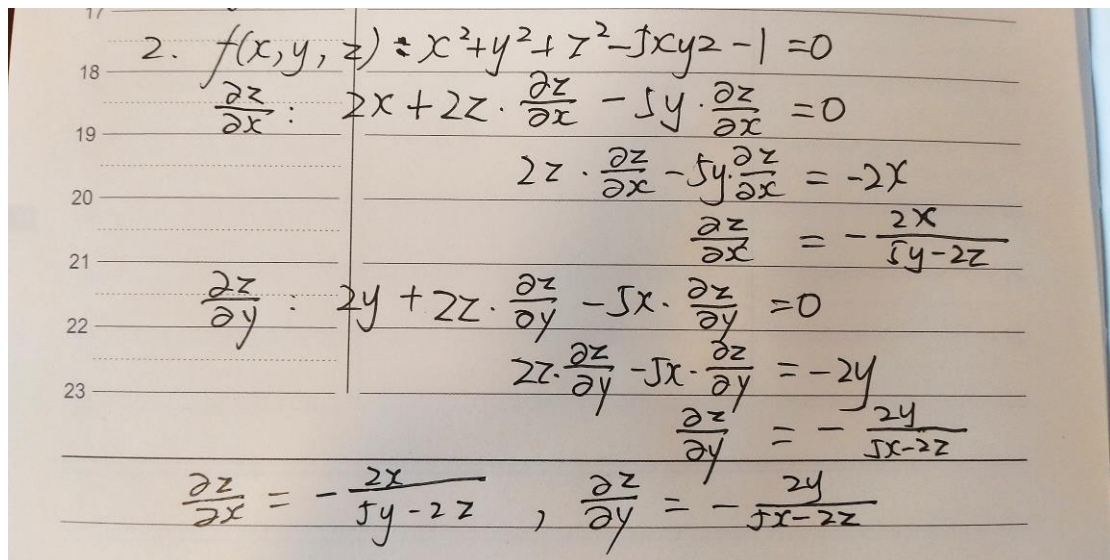 17
2. f(x, y, z) = x²+y²+z²-5xyz-1=0
18
∂z/∂x : 2x+2z·∂z/∂x-5y·∂z/∂x=0
19
2z·∂z/∂x-5y·∂z/∂x=-2x
20
∂z/∂x=-2x/(5y-2z)
21
∂z/∂y : 2y+2z·∂z/∂y-5x·∂z/∂y=0
22
2z·∂z/∂y-5x·∂z/∂y=-2y
23
∂z/∂y=-2y/(5x-2z)
∂z/∂x=-2x/(5y-2z), ∂z/∂y=-2y/(5x-2z)